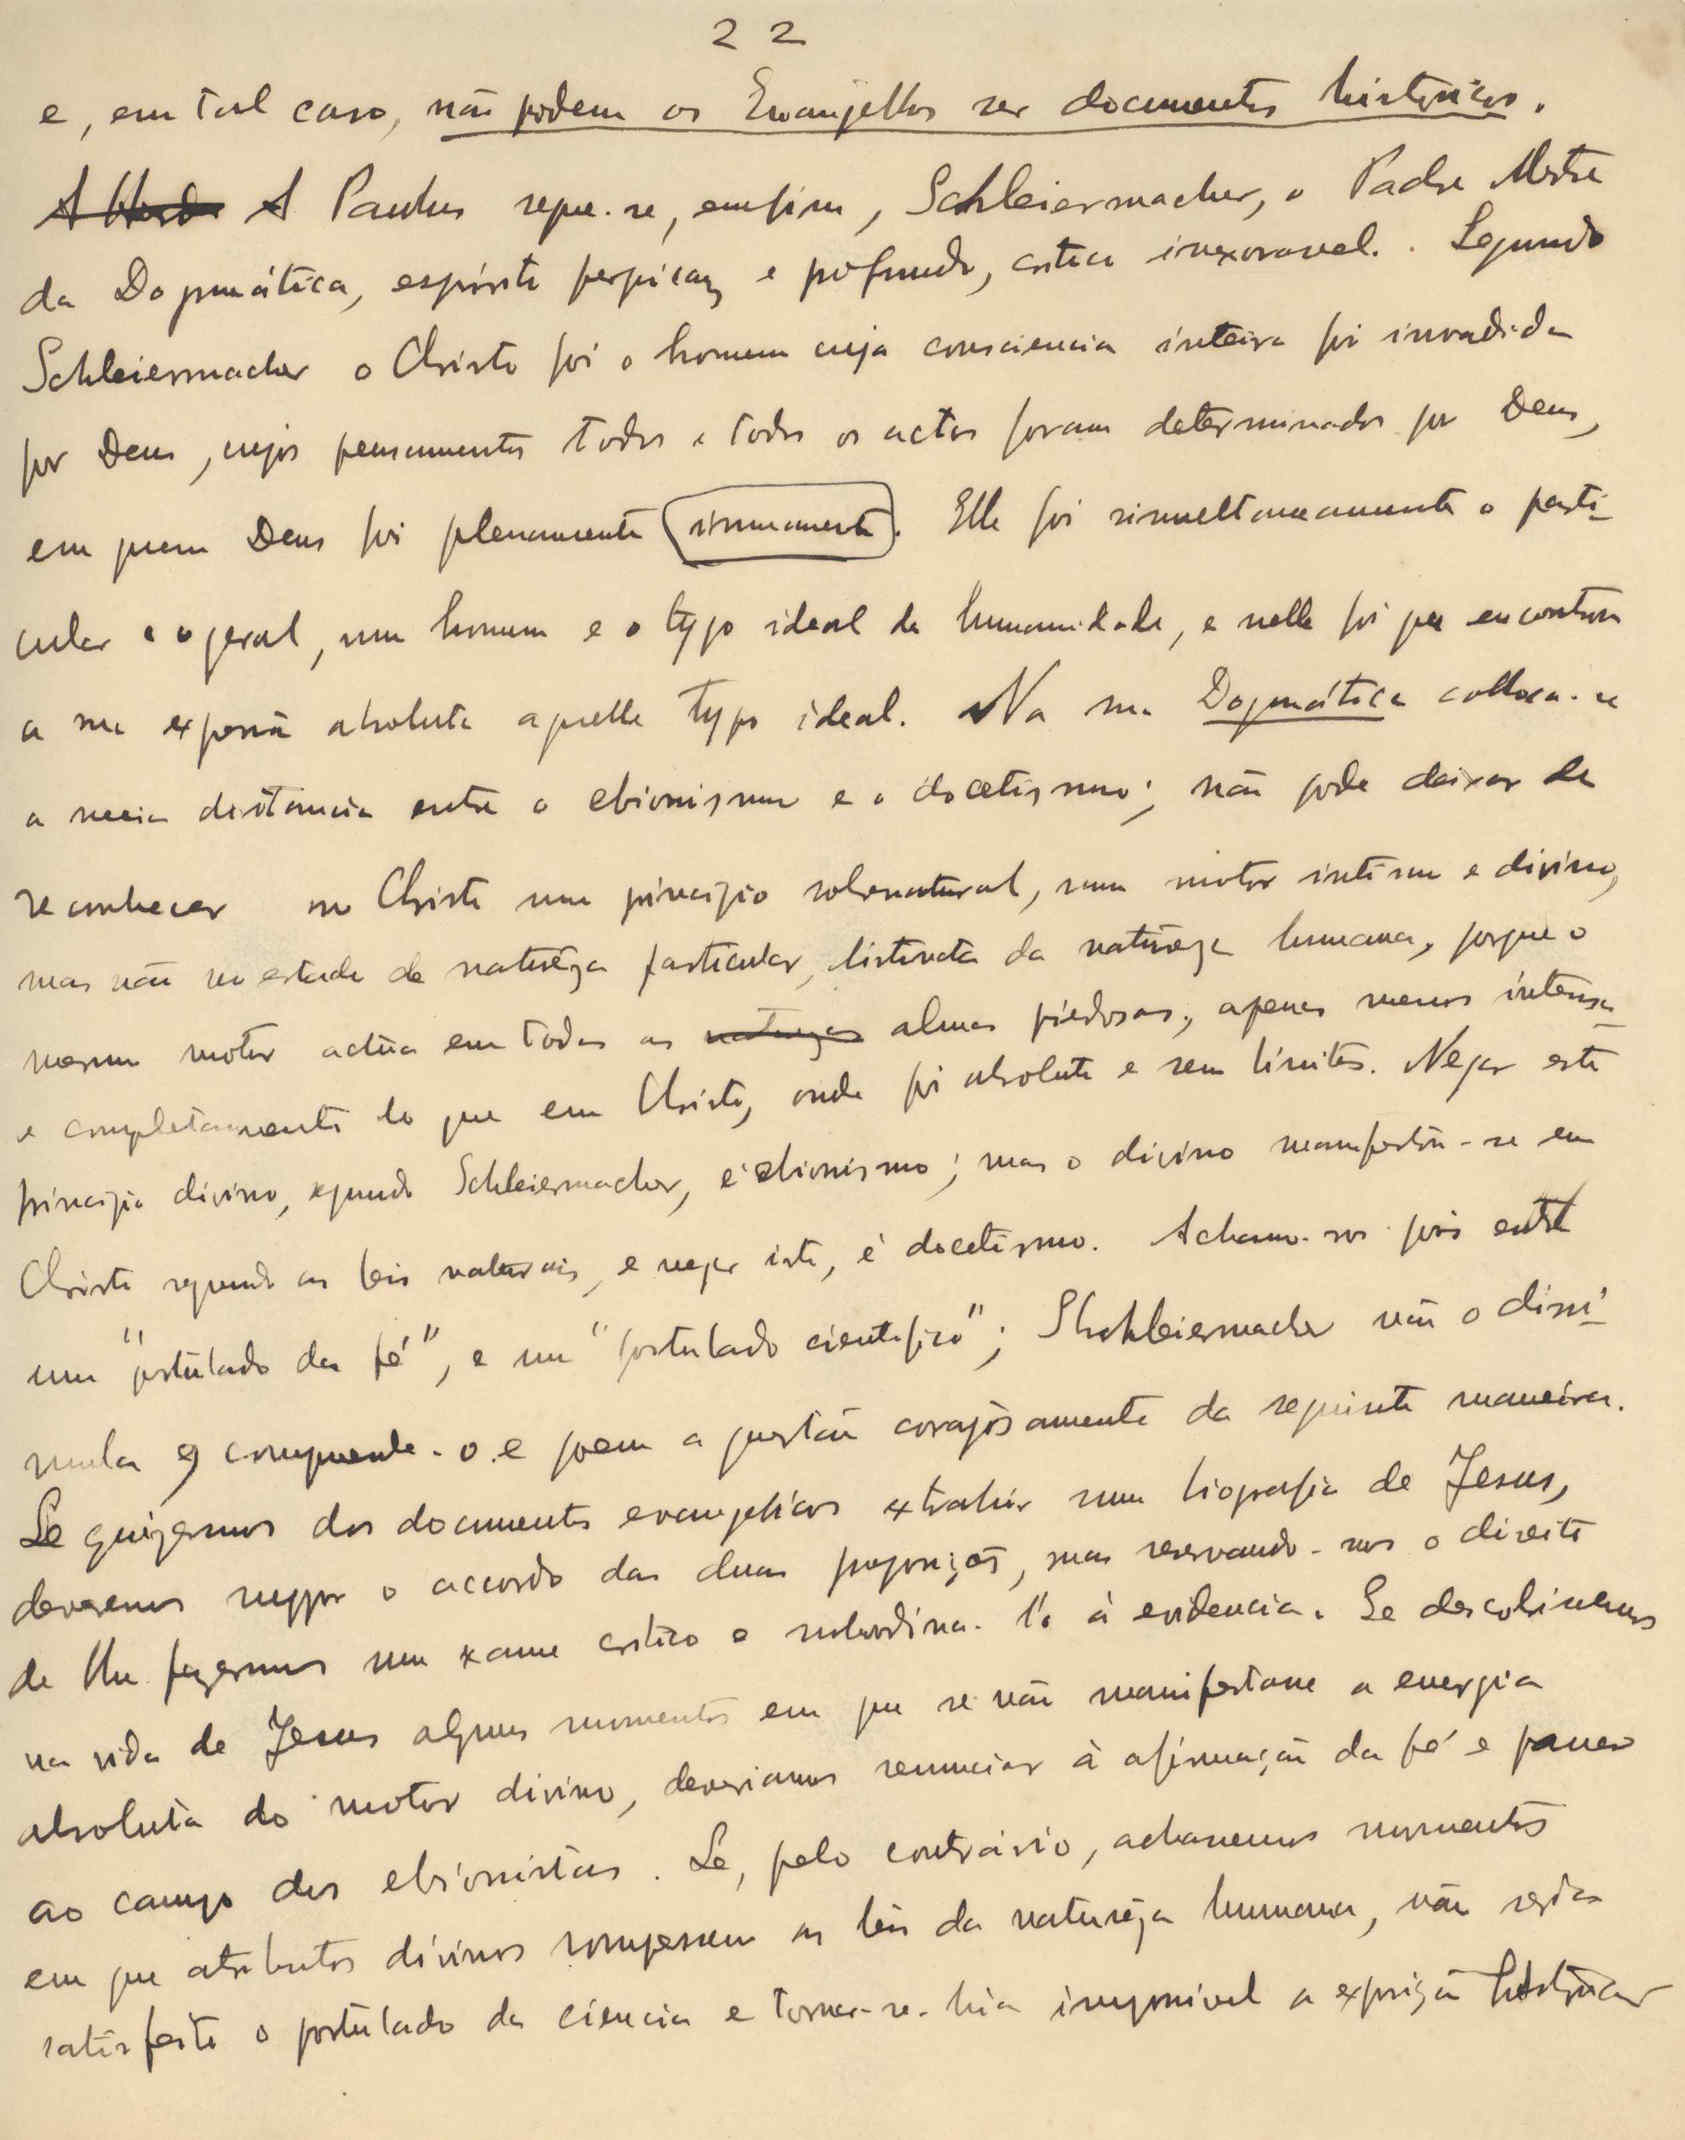 22
e, em tal caso, não podem os Evangelhos ser documentos históricos.
A Paulus segue-se, emfim, Schleiermacher, o Padre Mestre
da Dogmática, espírito perpicaz e profundo, critico inexoravel. Segundo
Schleiermacher o Christo foi o homem cuja consciencia inteira foi invadida
por Deus, cujos pensamentos todos e todos os actos foram determinados por Deus,
em quem Deus foi plenamente immanente. Elle foi simultaneamente o parti-
cular e o geral, um homem e o typo ideal da humanidade, e nelle foi que encontrou
a sua exposição absoluta aquelle typo ideal. Na sua Dogmática colloca-se
a meia distância entre o ebionismo e o docetismo; não pode deixar de
reconhecer no Christo um principio sobrenatural, num motor intimo e divino,
mas não no estado de naturêza particular, distincta da naturêza humana, porque o
mesmo motor actúa em todas as naturezas almas piedosas, apenas menos intensa
e completamente do que em Christo, onde foi absoluto e sem limites. Negar este
principio divino, segundo Schleiermacher, é ebionismo; mas o divino manifestou-se em
Christo segundo as leis naturais, e negar isto, é docetismo. Achamo-nos pois entre
um "postulado da fé", e um "postulado cientifico"; Shchleiermacher não o dissi-
mula e comprende-o e poem a questão corajosamente da seguinte maneira.
Se quizermos dos documentos evangelicos extrahir uma biografia de Jesus,
deveremos suppor o accordo das duas proposições, mas reservando-nos o direito
de lhe fazermos um xame critico e subordina-l'o à evidencia. Se descobrirmos
na vida de Jesus alguns momentos em que se não manifestasse a energia
absoluta do motor divino, deveriamos renunciar à afirmação da fé e passar
ao campo dos ebionistas. Se, pelo contrário, achassemos momentos
em que atributos divinos rompessem as leis da naturêza humana, não seria
satisfeito o postulado da ciencia e tornar-se-hia impossivel a exposição histórica